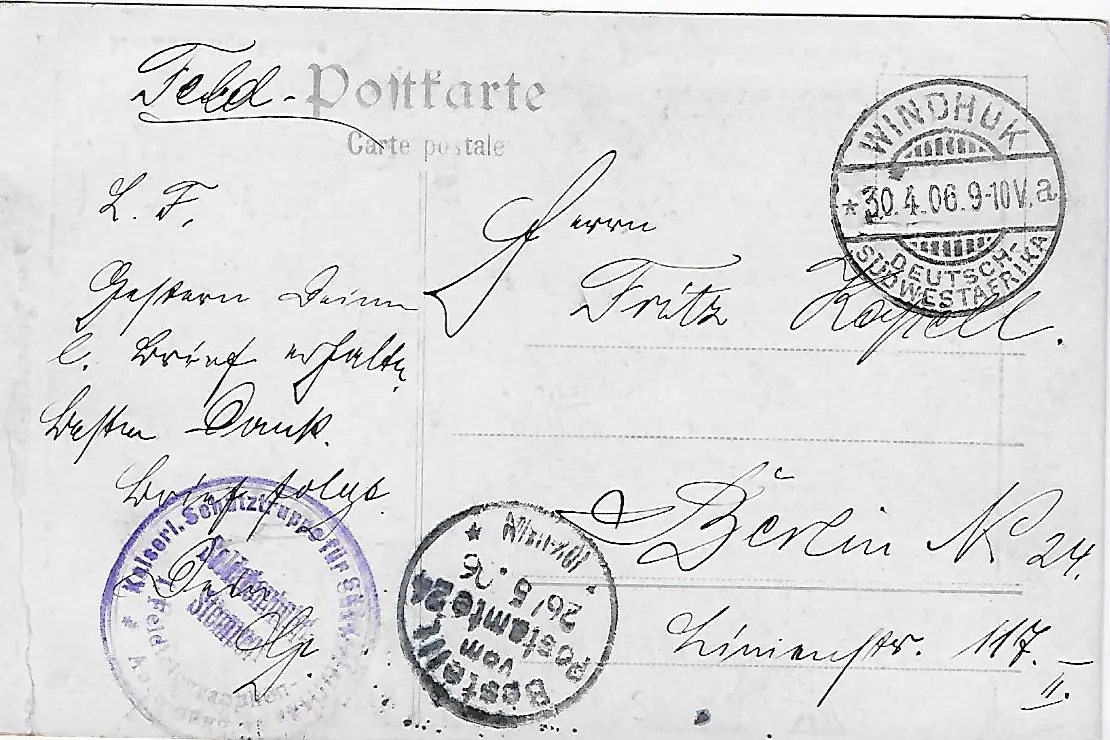 Feld-Postkarte
Carte postale
L. F.
Gestern Deinen
l. Brief erhalten
Besten Dank.
Brief folgt.
Dein
WINDHUK
* 30.4.06. 9-10V. a
DEUTSCH-
SÜDWESTAFRIKA
Herrn
Fritz
Berlin N 24.
Linienstr. 117.
II.
Kaiserl. Schutztruppe für Südwestafrika
Soldatenbrief
Stempel
Bestellt
vom
Postamte 24
26/5.06